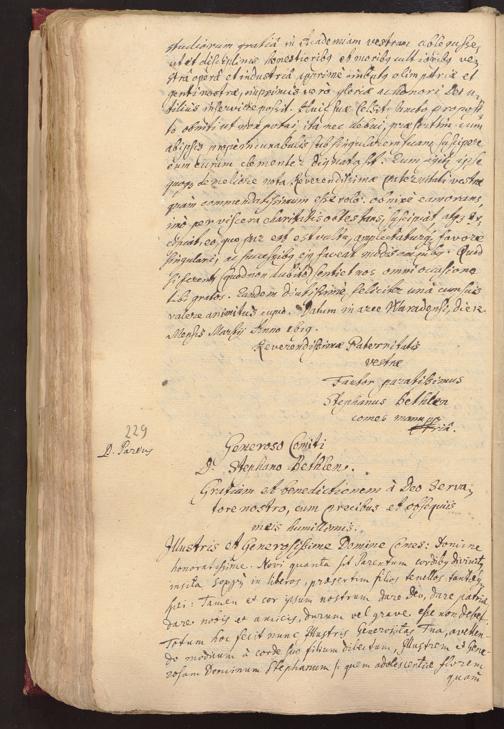 studiorum gratiâ in Academiam vestram ablegasse,
ut et disciplinis honestioribus et moribus cultioribus ve-
strâ operâ et industriâ apprimè imbutus olim patriæ et
genti nostræ, inprimis verò gloriæ ac honori Dei u-
tilius inservire possit. Huic suæ Celsitudinis sancto proposi-
to obniti ut non potui, ita nec debui, præsertim cum
ab ipsis incunabulis sub singularem tuam suscipere
eum curam clementer dignata sit. Eum
quoque de meliore nota Reverendissimæ paternitati vestræ
quàm commendatissimum esse volo
imò per viscera charitatis obtestans, suscipiat
eo, quo par est vultu, amplectatur, favore
singulari, ac successibus ejus faveat modis omnibus. Quod
si fecerit (quod non dubito) sentiet nos omni occasione
sibi gratos. Eandem diutissimè, feliciter unà cum suis
valere animitus cupio. Datum in arce Waradensi, die 12
Mensis Martii Anno 1619.
Reverendissimæ Paternitatis
vestræ
Fautor paratissimus
Stephanus Bethlen
comes manu pro-
pria.
229
D. Pareus
Generoso Comiti
D. Stephano Bethlen.
Gratiam et benedictionem à Deo Serva-
tore nostro, cum precibus et obsequiis
meis humillimis.
Illustris et Generosissime Domine Comes: Domine
honoratissime. Novi quanta sit Parentum cordibus divinitus
insita in liberos, præsertim filios tenellos
Tamen et cor ipsum nostrum dare Deo, dare patriæ
dare nobis et amicis, durum vel grave esse non debet.
Totum hoc fecit nunc Illustris Generositas Tua, avellen-
do modicum à corde suo filium dilectum, Illustrem et Gene-
rosum Dominum Stephanum quem adolescentiæ florem
quàm